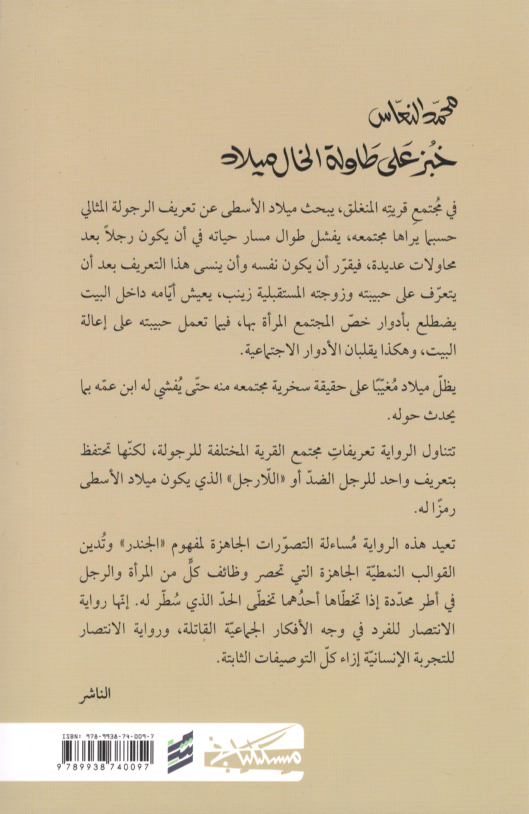 محمّد النعّاس
خُبز عَلى طَاولة الخال ميلاد
في مُجتمعِ قريتِه المنغلق، يبحث ميلاد الأسطى عن تعريف الرجولة المثالي
حسبما يراها مجتمعه، يفشل طوال مسار حياته في أن يكون رجلاً بعد
محاولات عديدة، فيقرّر أن يكون نفسه وأن ينسى هذا التعريف بعد أن
يتعرّف على حبيبته وزوجته المستقبلية زينب، يعيش أيّامه داخل البيت
يضطلع بأدوار خصّ المجتمع المرأة بها، فيما تعمل حبيبته على إعالة
البيت، وهكذا يقلبان الأدوار الاجتماعية.
يظلّ ميلاد مُغيّبًا على حقيقة سخرية مجتمعه منه حتّى يُفشي له ابن عمّه بما
يحدث حوله.
تتناول الرواية تعريفاتِ مجتمع القرية المختلفة للرجولة، لكنّها تحتفظ
بتعريف واحد للرجل الضدّ أو «اللّارجل» الذي يكون ميلاد الأسطى
رمزًا له.
تعيد هذه الرواية مُساءلة التصوّرات الجاهزة لمفهوم «الجندر» وتُدين
القوالب النمطيّة الجاهزة التي تحصر وظائف كلٍّ من المرأة والرجل
في أطر محدّدة إذا تخطّاها أحدُهما تخطّى الحدّ الذي سُطّر له. إنّها رواية
الانتصار للفرد في وجه الأفكار الجماعيّة القاتلة، ورواية الانتصار
للتجربة الإنسانيّة إزاء كلّ التوصيفات الثابتة.
الناشر
ISBN: 978-9938-74-009-7
9 789938 740097